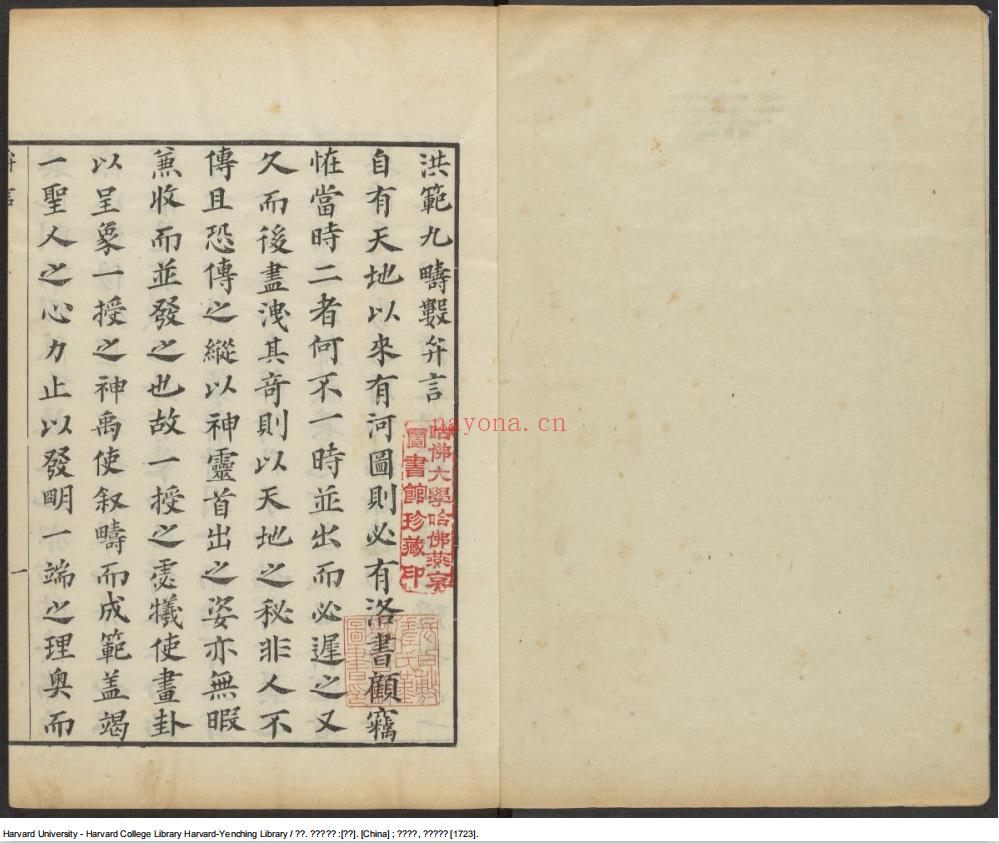 洪範九疇數弁言
自有天地以來有河圖則必有洛書顧竊
恠當時二者何不一時並出而必遲之又
久而後盡洩其竒則以天地之秘非人不
傳且恐傳之縱以神靈首出之姿亦無暇
蕉收而並發之也故一授之虙犧使畫卦
以呈象一授之神禹使叙疇而成範盖竭
一聖人之心力止以發明一端之理奥而
弁言
一
哈佛大學哈佛燕京
圖書館珍藏印
nayona.cn
Harvard University - Harvard College Library Harvard-Yenching Library / ??. ????? :[??]. [China] ; ????, ????? [1723].